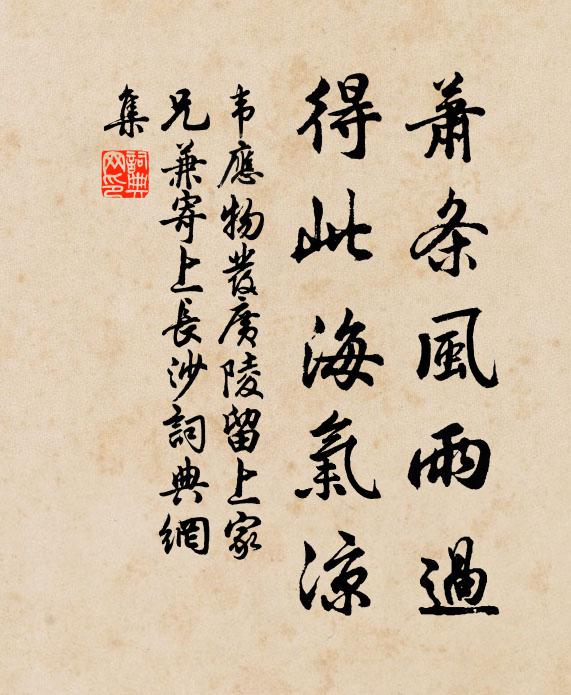 蕭条風雨過
得此海氣涼
韦應物發廣陵留上家
兄兼寄上長沙詞典網
集
詞典网印